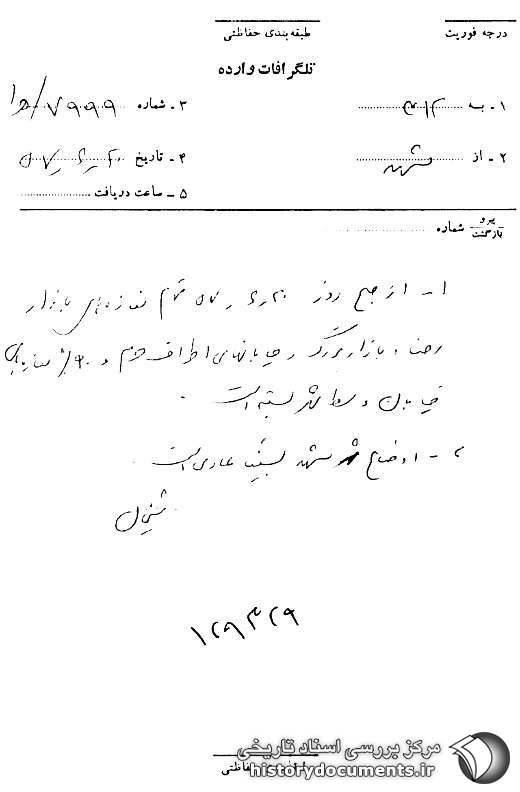 درجه فوریت
طبقه‌بندی حفاظتی
تلگرافات وارده
۱ - به ۳۱۲
۳ - شماره ۷۹۹۹/هـ۱
۲ - از مشهد
۴ - تاریخ ۲۰-۶-۵۷
۵ - ساعت دریافت
پیرو بازگشت شماره
۱- از صبح روز ۲۰/۶/۵۷ تمام مغازه‌های بازار
رضا و بازار بزرگ و خیابانهای اطراف حرم و ۹۰٪ مغازه‌های
خیابان وسط شهر بسته است.
۲- اوضاع شهر مشهد نسبتاً عادی است.
شیخان
۱۲۹۳۲۹
طبقه‌بندی حفاظتی
مرکز بررسی اسناد تاریخی
historydocuments.ir